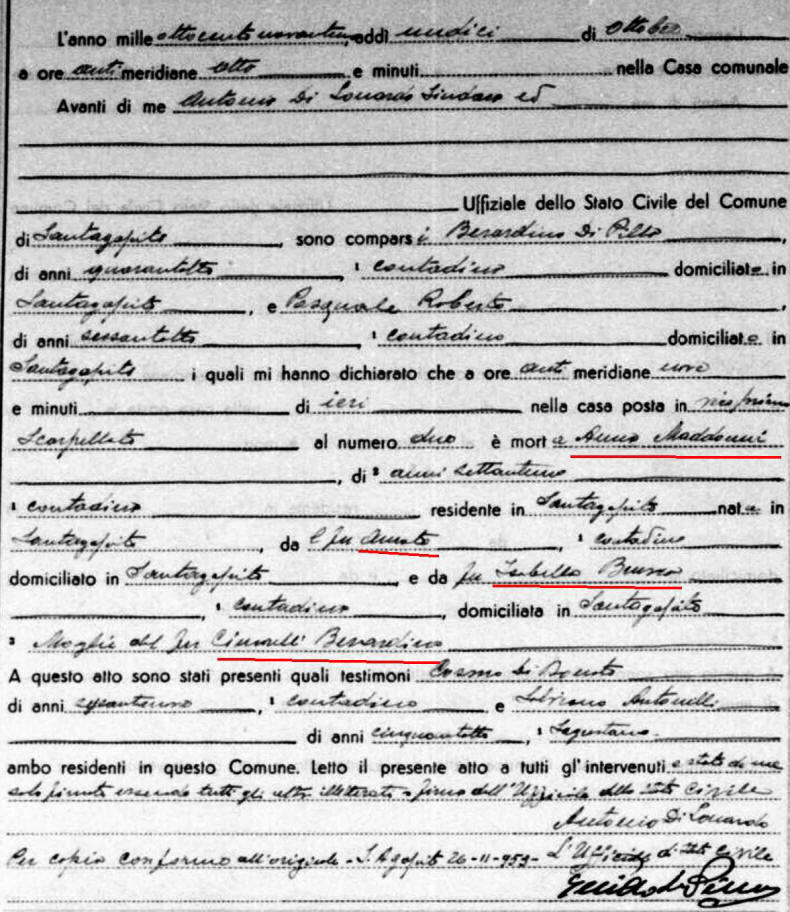 L'anno mille ottocentonovantuno, addì undici di Ottobre
a ore anti meridiane otto e minuti nella Casa comunale
Avanti di me Antonio Di Lonardo Sindaco ed
Uffiziale dello Stato Civile del Comune
di Santagapito, sono comparsi Berardino Di Pillo,
di anni quarantotto, ¹ contadino domiciliate in
Santagapito, e Pasquale Roberto,
di anni sessantotto, ¹ contadino domiciliate in
Santagapito i quali mi hanno dichiarato che a ore anti meridiane nove
e minuti di ieri nella casa posta in
Scarpellato al numero due è morta Anna Maddonni
, di ² anni settantuno
¹ contadina residente in Santagapito nata in
Santagapito, da fu Amato, ¹ contadino
domiciliato in Santagapito, e da fu Isabella
, ¹ contadina, domiciliata in Santagapito
³ Moglie del fu Cimorelli Berardino
A questo atto sono stati presenti quali testimoni Cosmo Di
di anni sessantuno, ¹ contadino e Antonelli
di anni cinquantotto, ¹
ambo residenti in questo Comune. Letto il presente atto a tutti gl'intervenuti è stato da me
solo firmato essendo tutti gli altri illetterati - firma dell'Ufficiale dello stato civile
Antonio Di Lonardo
Per copia conforme all'originale - S. Agapito 26-11-959 - L'Ufficiale di stato Civile